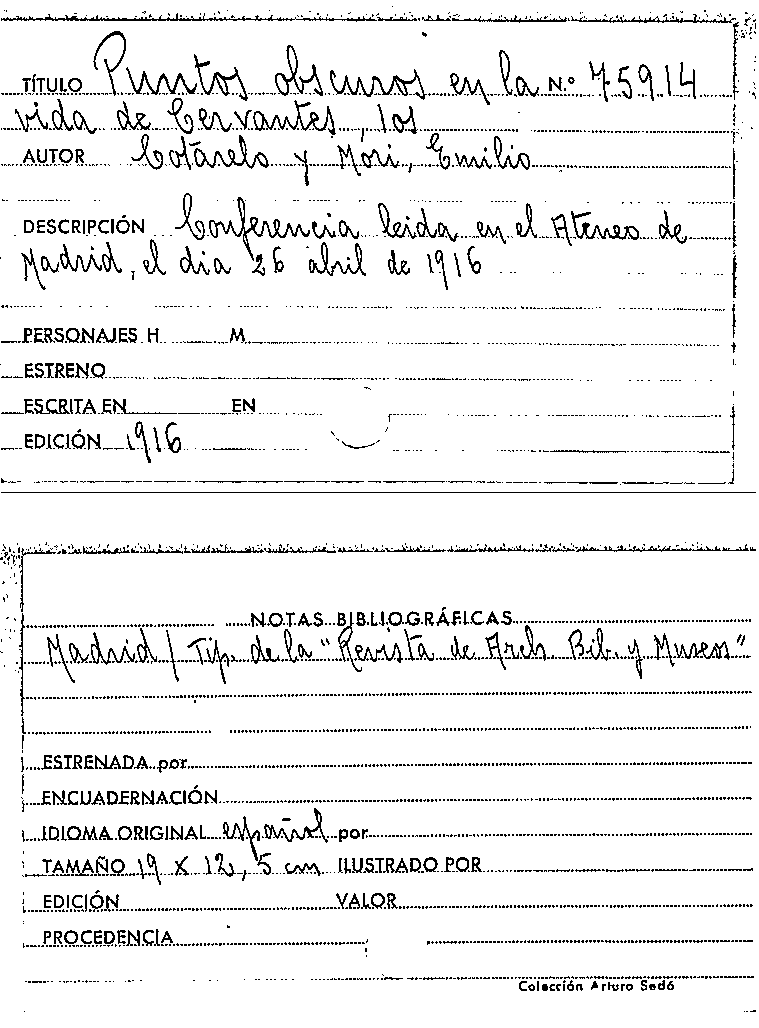 TÍTULO Puntos obscuros en la N.º 75914
vida de Cervantes, los
AUTOR Cotarelo y Mori, Emilio
DESCRIPCIÓN Conferencia leida en el Ateneo de
Madrid, el dia 26 abril de 1916
PERSONAJES H M
ESTRENO
ESCRITA EN EN
EDICIÓN 1916
NOTAS BIBLIOGRÁFICAS
Madrid / Tip. de la "Revista de Arch. Bib. y Museos"
ESTRENADA por
ENCUADERNACIÓN
IDIOMA ORIGINAL español por
TAMAÑO 19 X 12,5 cm ILUSTRADO POR
EDICIÓN VALOR
PROCEDENCIA
Colección Arturo Sedó